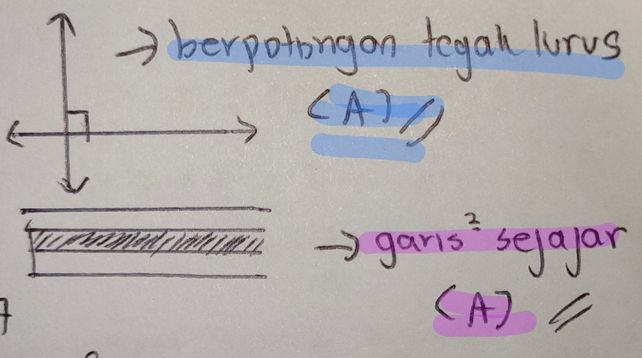 → berpotongan tegak lurus
(A) //
→ garis² sejajar
(A) //
7